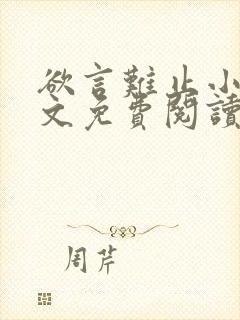 欲言難止小
文免費閱讀
周芹